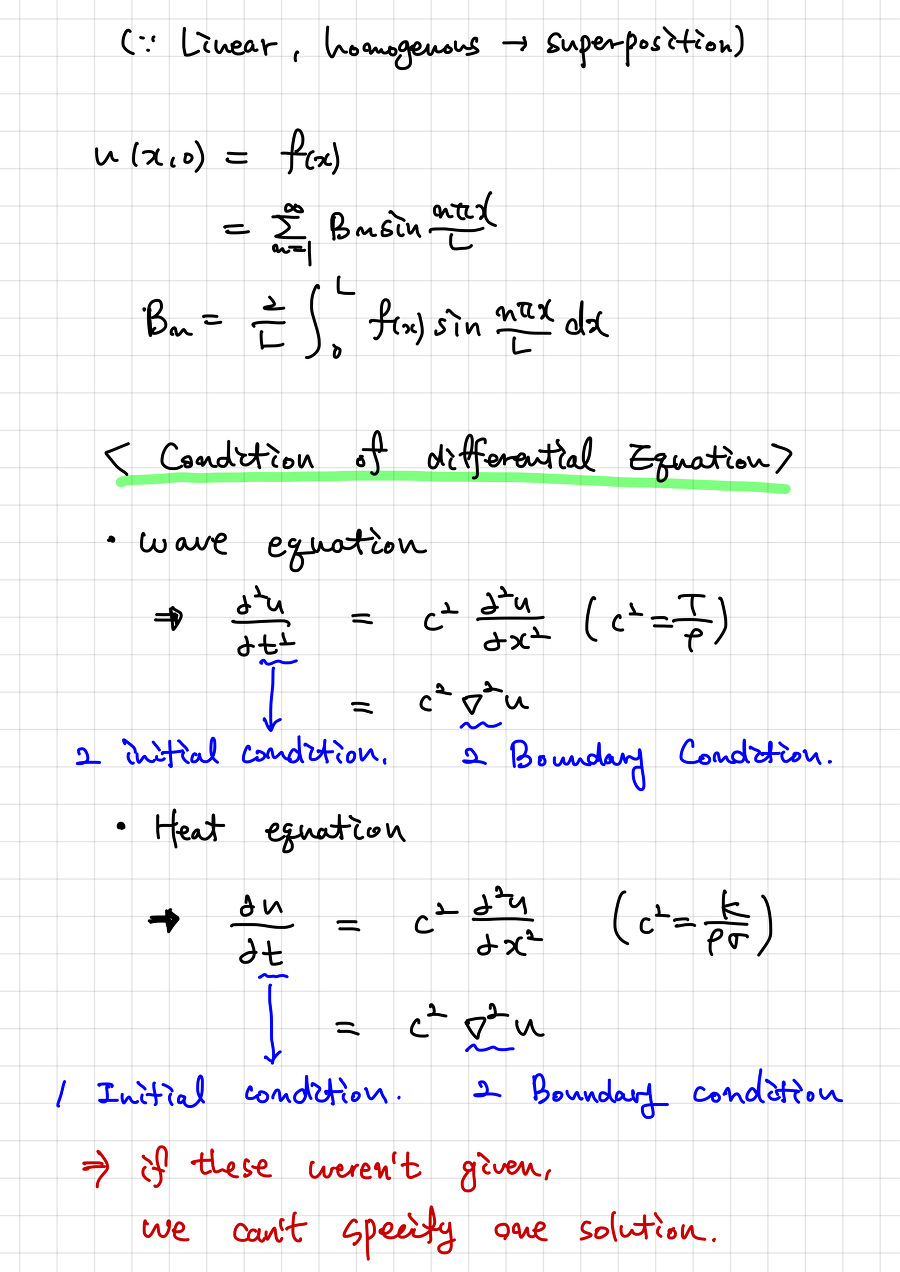 (∵ Linear, homogenous → superposition)
u(x,0) = f(x)
= ∑_{n=1}^{∞} B_n sin nπx/L
B_n = 2/L ∫_0^L f(x) sin nπx/L dx
< Condition of differential Equation>
• wave equation
⇒ ∂²u/∂t² = c² ∂²u/∂x² (c² = T/ρ)
= c² ∇²u
2 initial condition. 2 Boundary Condition.
• Heat equation
→ ∂u/∂t = c² ∂²u/∂x² (c² = k/ρσ)
= c² ∇²u
1 Initial condition. 2 Boundary condition
⇒ if these weren't given,
we can't specify one solution.